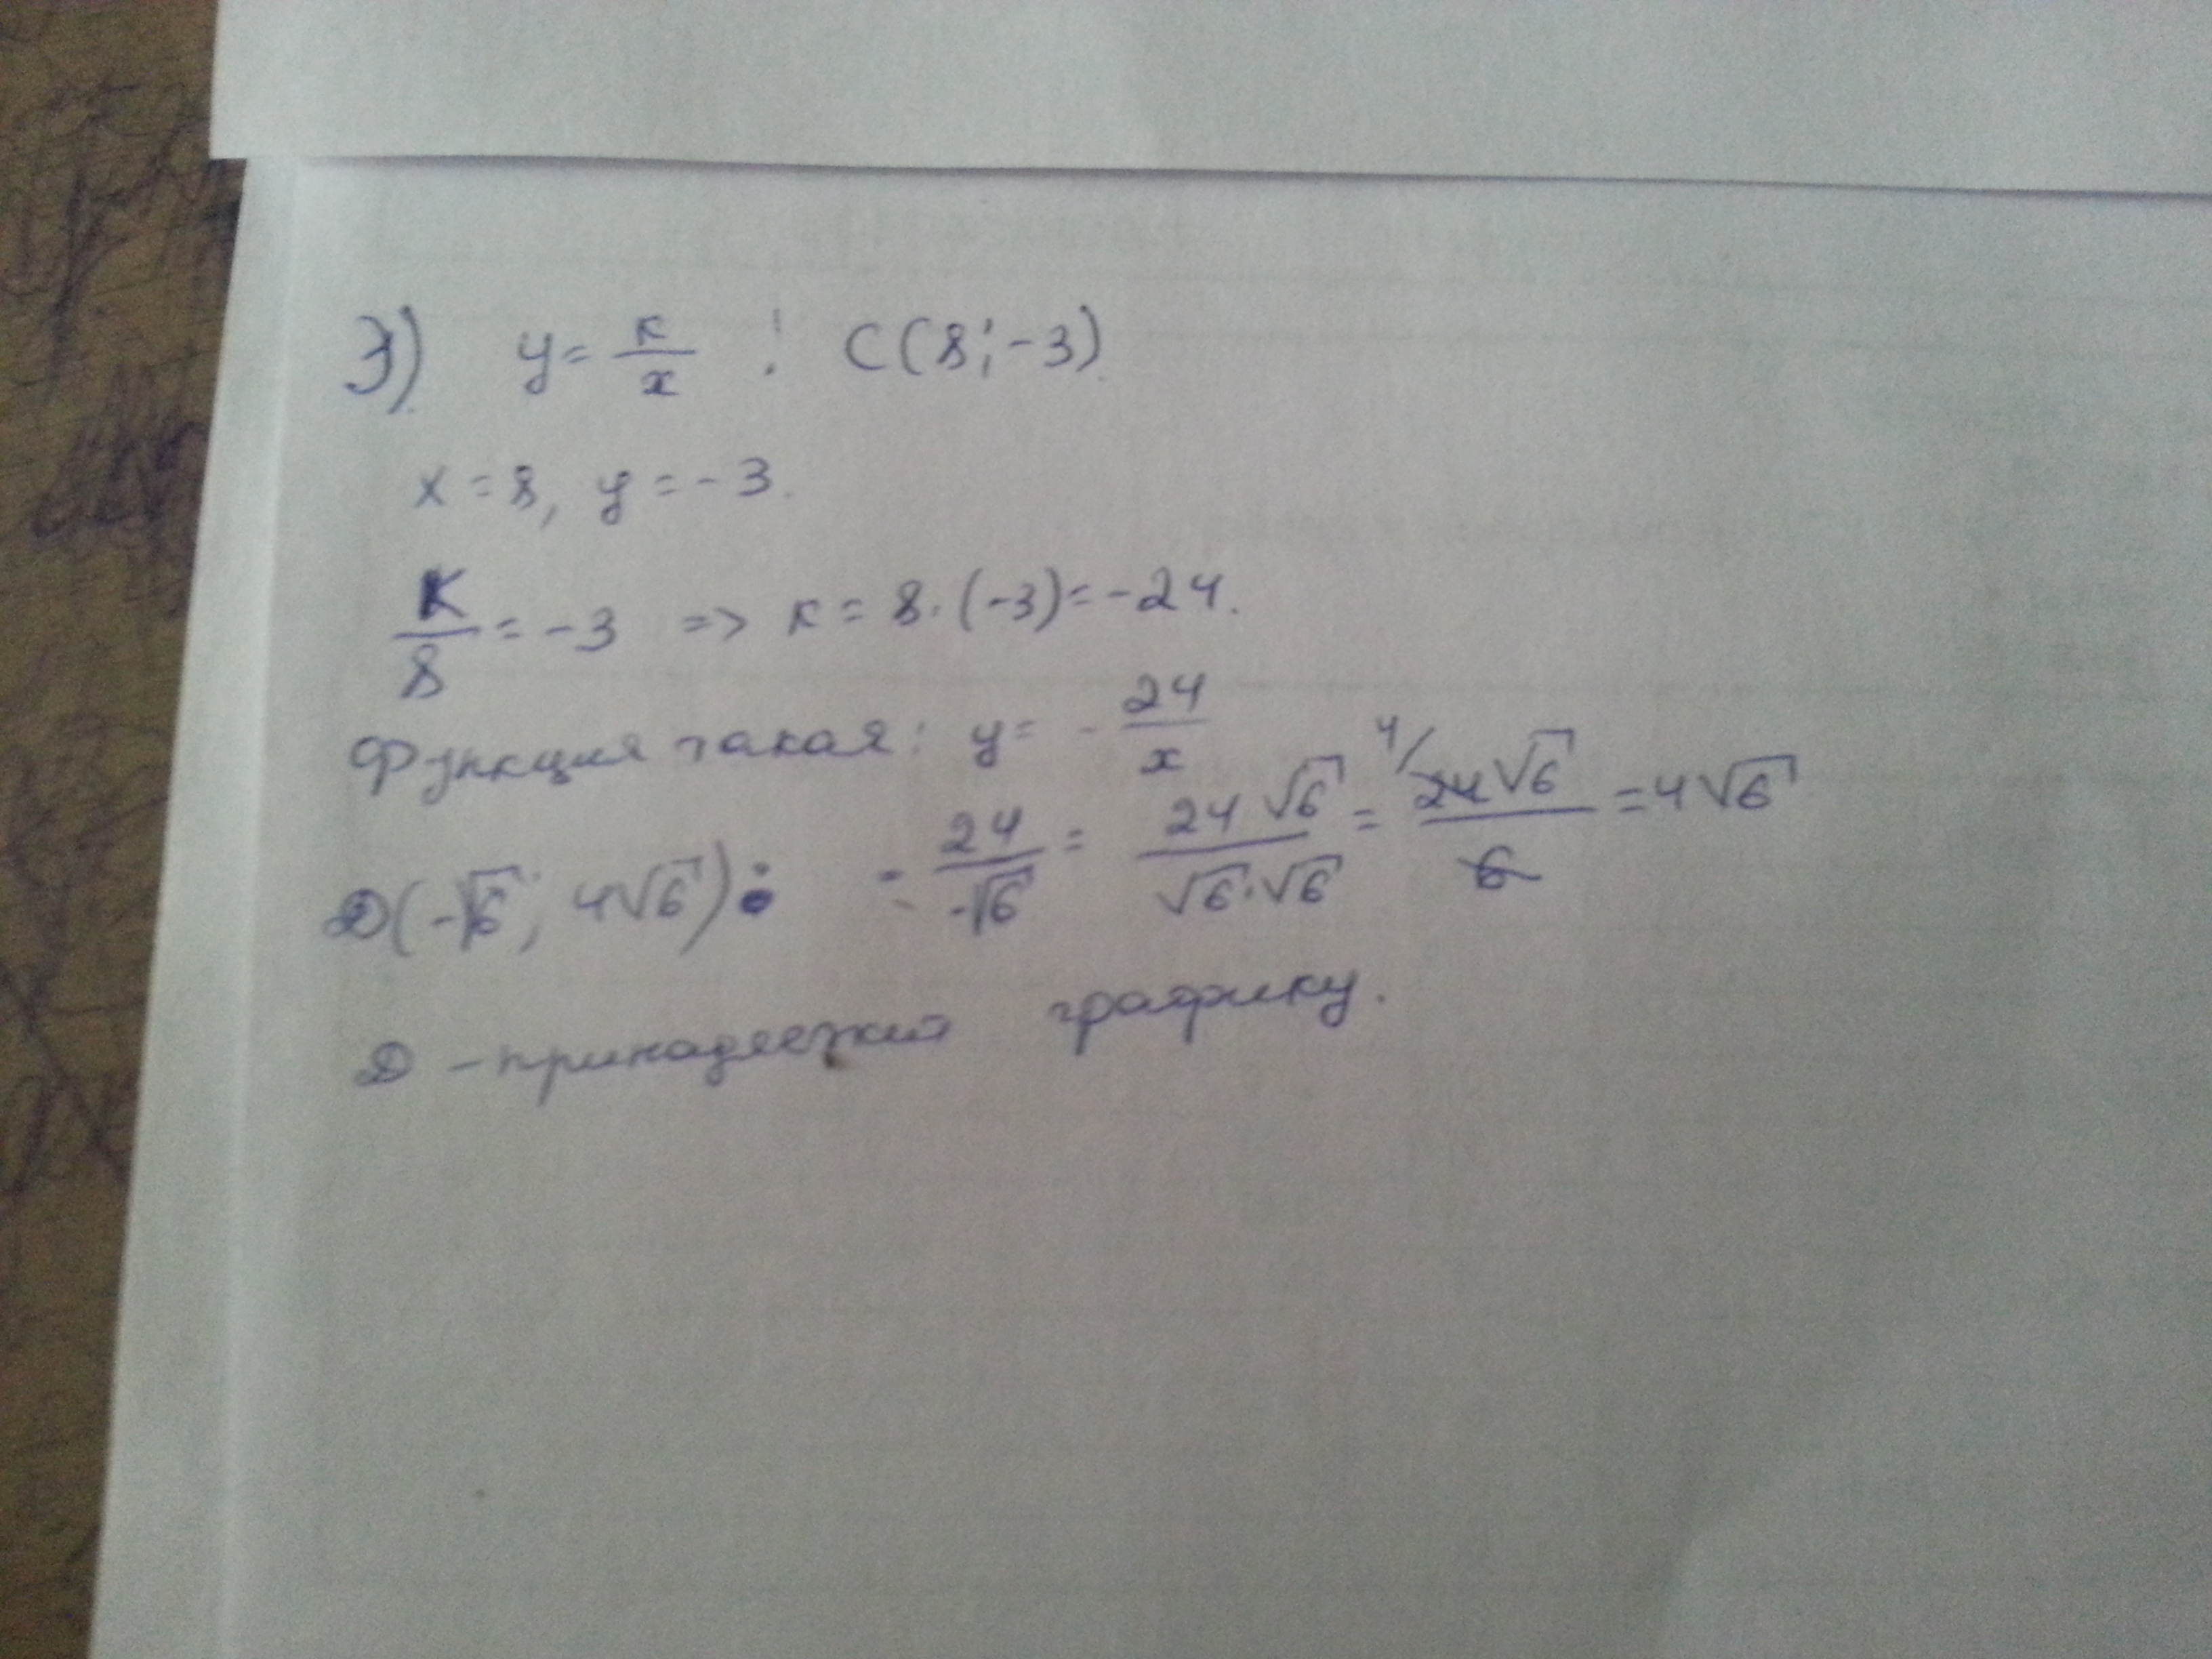 3) y = к/x ; C(8; -3)
x = 8, y = -3.
К/8 = -3 => к = 8 · (-3) = -24.
Функция такая: y = - 24/x
D(-√6; 4√6): - 24/-√6 = 24√6/√6·√6 = 24√6/6 = 4√6
D - принадлежит графику.